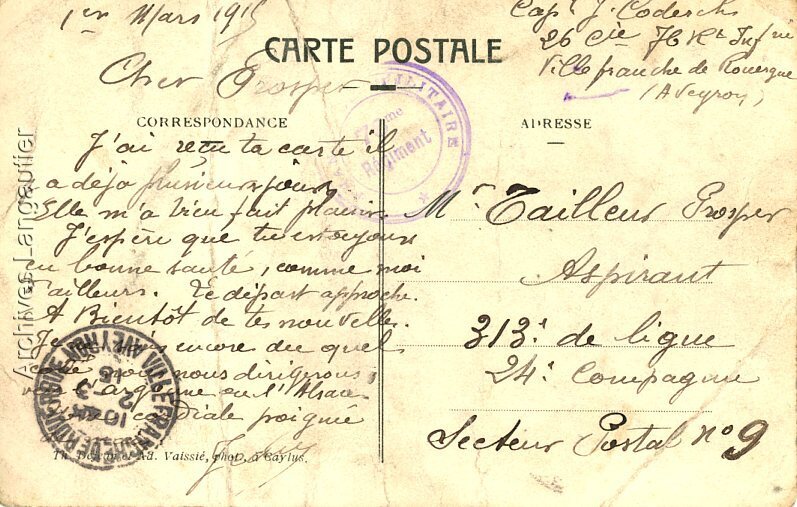 1er Mars 1915
CARTE POSTALE
Capl J. Coderch
26 Cie 7 Rt Infrie
Villefranche de Rouergue
(Aveyron)
Cher Prosper
MILITAIRE
7me
Régiment
CORRESPONDANCE
ADRESSE
J'ai reçu ta carte il
a déjà plusieurs jours
Elle m'a bien fait plaisir.
J'espère que tu es toujours
en bonne santé, comme moi
d'ailleurs. Le départ approche.
A Bientôt de tes nouvelles.
Je encore du quel
côté nous nous dirigerons,
vers l'argonne ou l'Alsace
cordiale poignée
Mr Tailleur Prosper
Aspirant
313e de ligne
24e Compagnie
Secteur Postal no 9
VILLEFRANCHE-DE-ROUERGUE AVEYRON
16
2 - 3
15
Th. et Ad. Vaissié, phot. à Caylus.
Archives Langautier